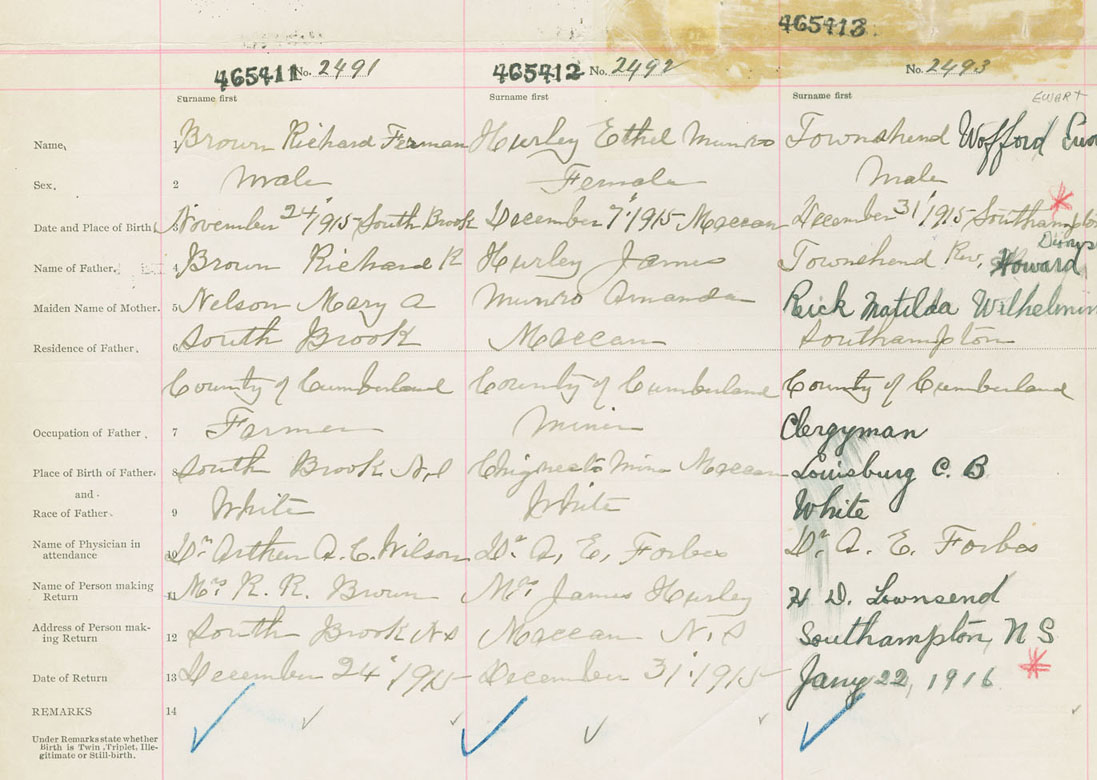 465413
465411 No. 2491 465412 No. 2492 No. 2493
Surname first Surname first Surname first EWART
Name, 1 Brown Richard Ferman Hurley Ethel Munro Townshend Wofford
Sex. 2 Male Female Male
Date and Place of Birth, 3 November 24' 1915 South Brook December 7' 1915 Maccan December 31' 1915 Southampton
Name of Father, 4 Brown Richard R Hurley James Townshend Rev, Howard
Maiden Name of Mother. 5 Nelson Mary A Munro Amanda Rick Matilda
Residence of Father, 6 South Brook Maccan Southampton
County of Cumberland County of Cumberland County of Cumberland
Occupation of Father, 7 Farmer Miner Clergyman
Place of Birth of Father. 8 South Brook N.S Chignecto Mine Maccan Louisburg C. B
and
Race of Father. 9 White White White
Name of Physician in
attendance 10 Dr Arthur A. C. Wilson Dr A, E, Forbes Dr A. E. Forbes
Name of Person making
Return 11 Mrs R. R. Brown Mrs James Hurley H D. Townsend
Address of Person mak-
ing Return 12 South Brook N S Maccan N, S Southampton, N S
Date of Return 13 December 24' 1915 December 31' 1915 Jany 22, 1916
REMARKS 14
Under Remarks state whether
Birth is Twin, Triplet, Ille-
gitimate or Still-birth.